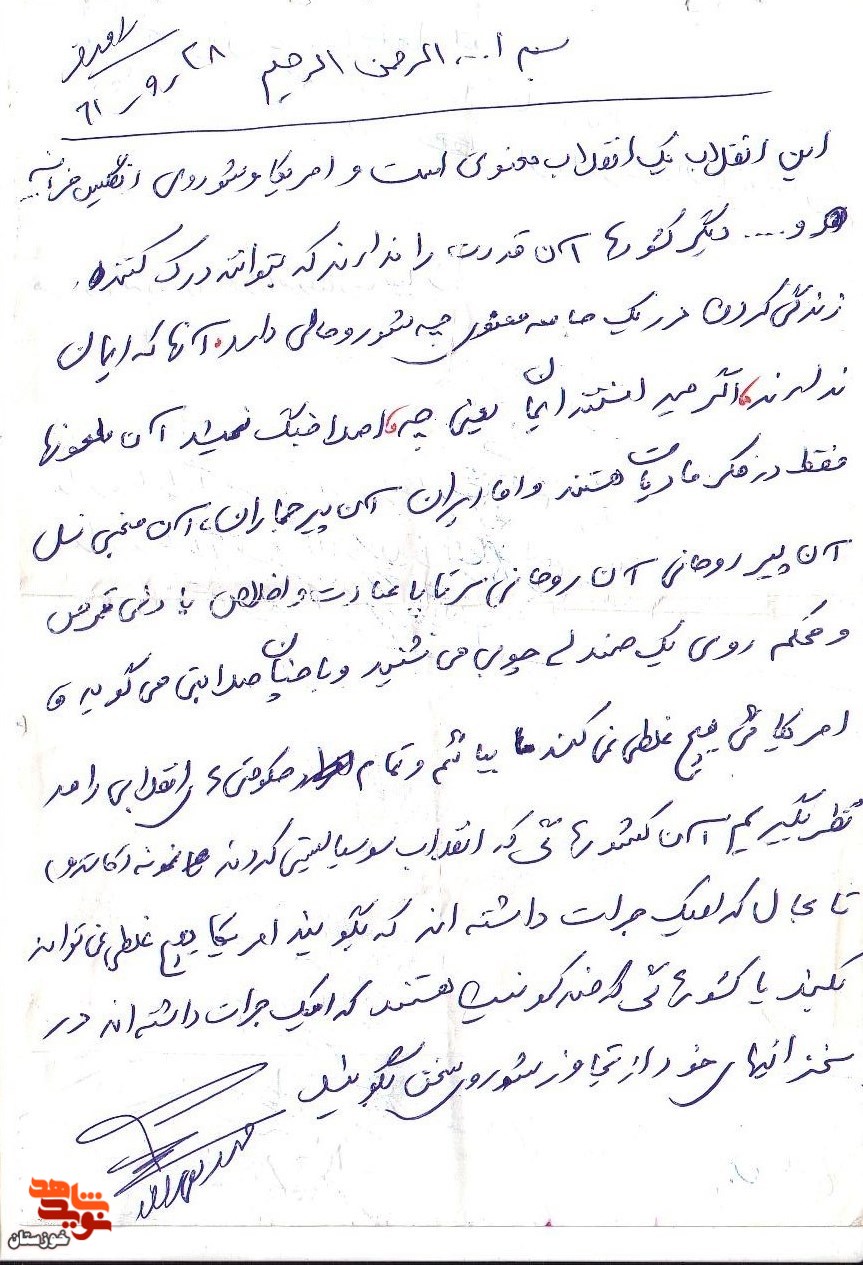 بسم ا... الرحمن الرحیم ۲۸ ر ۹ ر ۶۱
این انقلاب یک انقلاب معنوی است و امریکا و شوروی انگلیس فرانسه
و .... دیگر کشورها آن قدرت را ندارند که بتوانند درک کنند
زندگی کردن در یک جامعه معنوی چه شور و حالی دارد. آنها که ایمان
ندارند اگر میدانستند ایمان یعنی چه اصلا جنگ نمیشد آن ملعونها
فقط در فکر مادیات هستند و اما ایران آن پیر جماران، آن منجی نسل
آن پیر روحانی آن روحانی سرتاپا عبادت و اخلاص با دلی قرص
و محکم روی یک صندلی چوبی می نشنید و با چنان صدایتی می گوید
امریکا هیچ غلطی نمی کند بیائیم و تمام حکومتی های انقلابی را مد
نظر بگیریم آن کشورهائی که انقلاب سوسیالیستی کردن نمونه (کاسترو)
تا بحال کدامیک جرات داشته اند که بگویند امریکا هیچ غلطی نمی تواند
بکند یا کشورهائی که ضد کمونیسم هستند کدامیک جرات داشته اند در
سخنرانیهای خود از تجاوز شوروی سخن بگویند
شاهد
نوید
خوزستان